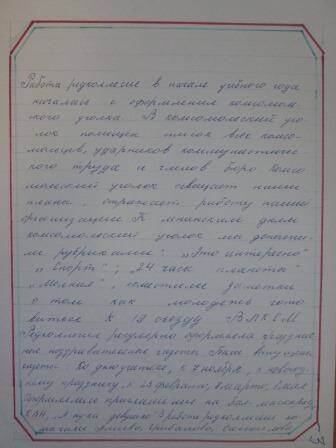 Работа редколлегие в начале учебного года
началась с оформления комсомоль
ского уголка. В комсомольский уго
лок помещен список всех комсо-
мольцев, ударников коммунистичес
кого труда и членов бюро. Комсо
мольский уголок освещает наши
планы, отражает работу нашей
организации. К ленинским дням
комсомольский уголок мы дополни-
ли рубриками: "Это интересно"
"Спорт"; "24 часа планеты"
"Молния", поместили заметки
о том как молодежь гото
вится к 19 съезду ВЛКСМ
Редколлегия регулярно оформляла празднич
ные поздравительные газеты. Были выпущены
газеты: Ко дню учителя, к 7 ноября, к новогод
нему празднику, к 23 февраля, 8 марта, 1 мая
Оформляли приглашение на бал-маскарад,
КВН, "А ну-ка девушки". В работе редколлегии по
могали